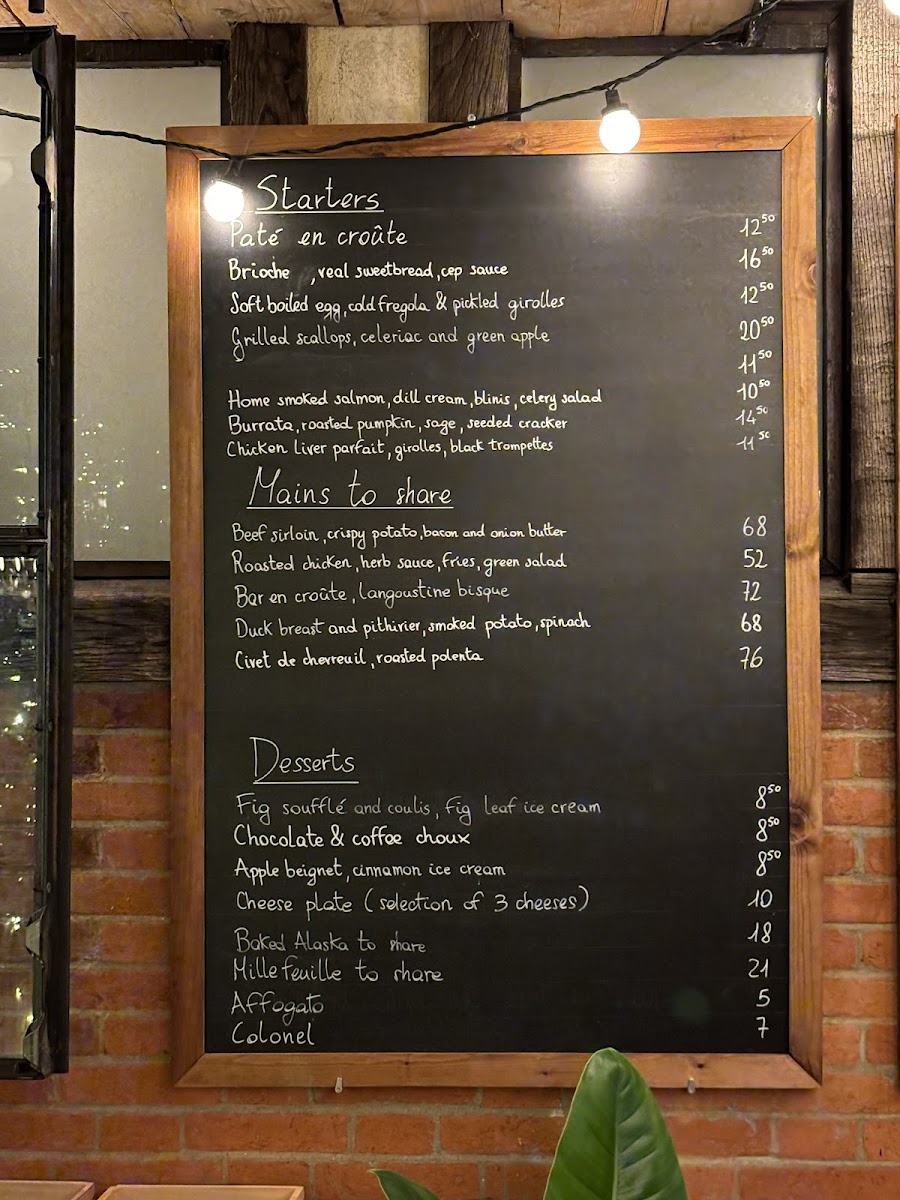 Starters
Paté en croûte 12⁵⁰
Brioche , veal sweetbread, cep sauce 16⁵⁰
Soft boiled egg, cold fregola & pickled girolles 12⁵⁰
Grilled scallops, celeriac and green apple 20⁵⁰
11⁵⁰
Home smoked salmon, dill cream, blinis, celery salad 10⁵⁰
Burrata, roasted pumpkin, sage, seeded cracker 14⁵⁰
Chicken Liver parfait, girolles, black trompettes 11⁵⁰
Mains to share
Beef sirloin, crispy potato, bacon and onion butter 68
Roasted chicken, herb sauce, fries, green salad 52
Bar en croûte, langoustine bisque 72
Duck breast and pithivier, smoked potato, spinach 68
Civet de chevreuil, roasted polenta 76
Desserts
Fig soufflé and coulis, fig leaf ice cream 8⁵⁰
Chocolate & coffee choux 8⁵⁰
Apple beignet, cinnamon ice cream 8⁵⁰
Cheese plate (selection of 3 cheeses) 10
Baked Alaska to share 18
Millefeuille to share 21
Affogato 5
Colonel 7